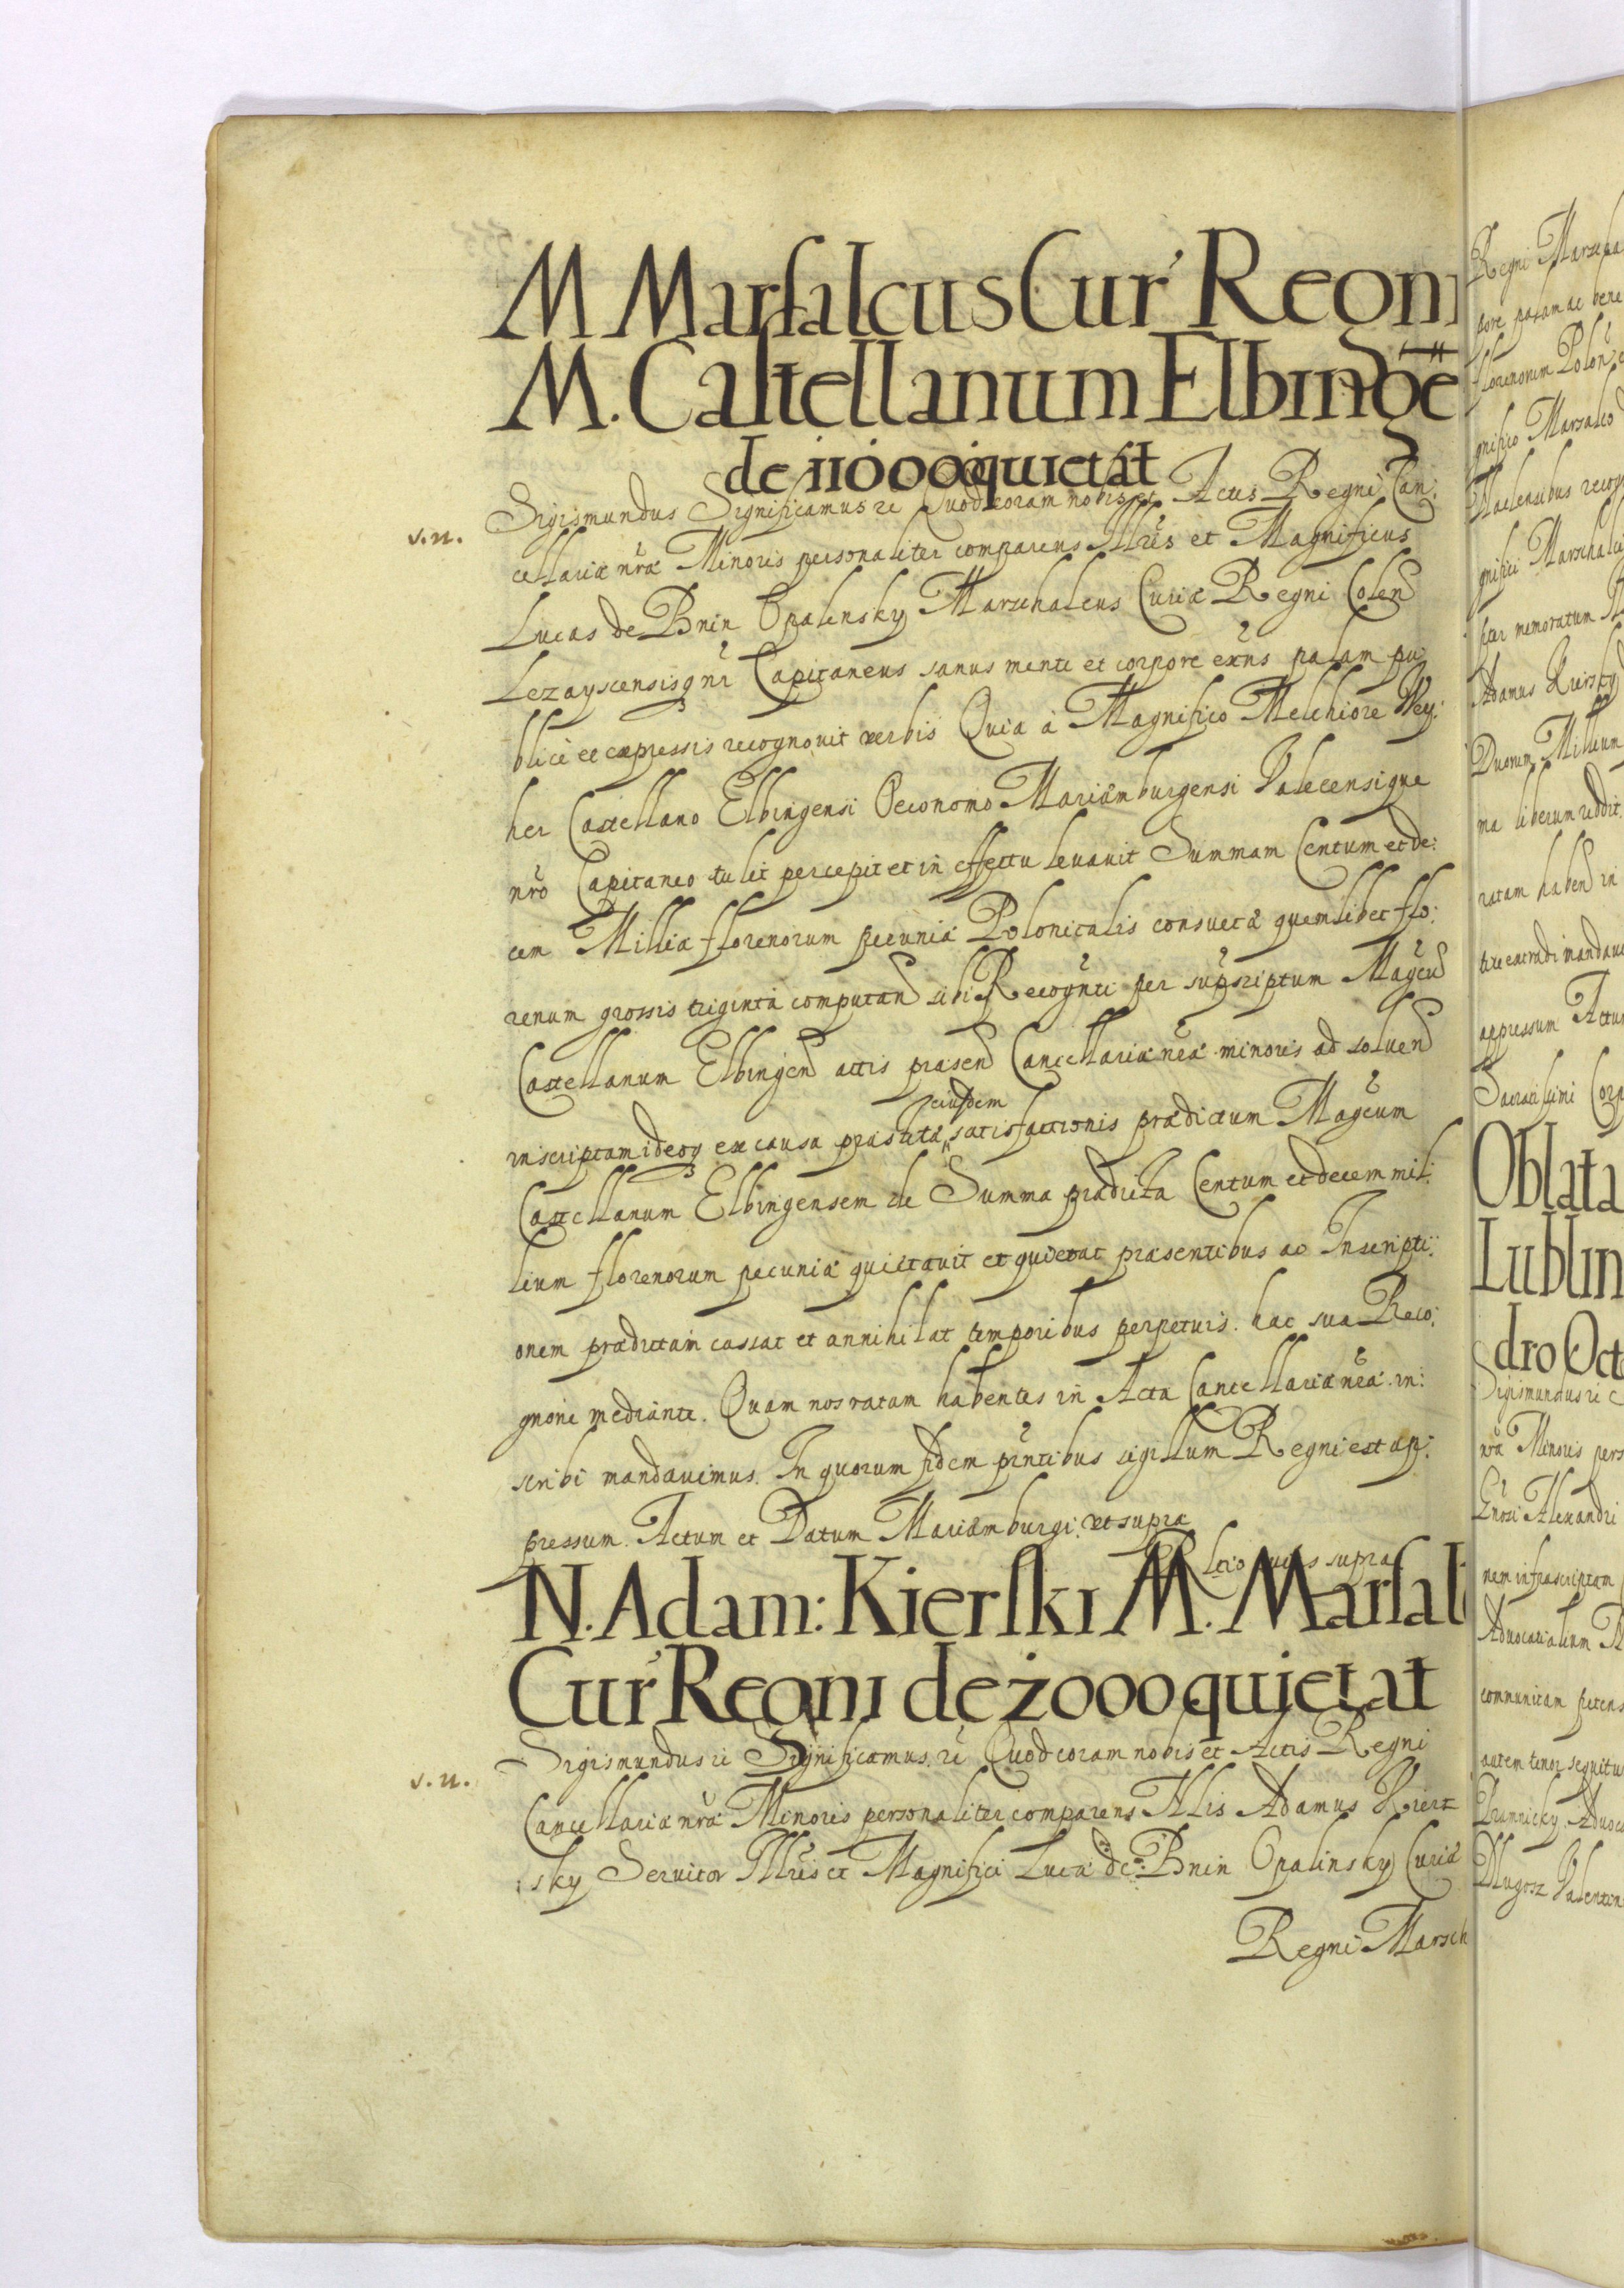 M Marsalcus Cur Regni
M. Castellanum Elbinge
de 110000 quietat
s. n.
Sigismundus Significamus rc Quod coram nobis et Actis Regni Can:
cellariæ nræ Minoris personaliter comparens Illris et Magnificus
Lucas de Bnin Opalensky Marschalcus Curiæ Regni Colend
Lezayscensisq nr Capitaneus sanus mente et corpore exns palam pu:
blicè et expressis recognouit verbis Quia à Magnifico Melchiore Wey:
her Castellano Elbingensi Oeconomo Mariæmburgensi Valecensique
nro Capitaneo tulit percepit et in effectu leuauit Summam Centum et de:
cem Millia florenorum pecuniæ Polonicalis consuetæ quemlibet flo:
renum grossis triginta computand sibi Recognti per supscriptum Magcu
Castellanum Elbingen actis præsen Cancellariæ nræ minoris ad soluend
inscriptam ideoq ex causa præstitæ eiusdem satisfactionis prædictum Magcum
Castellanum Elbingensem de Summa prædicta Centum et decem mil:
lium florenorum pecuniæ quietauit et quietat præsentibus ac Inscripti:
onem prædictam cassat et annihilat temporibus perpetuis hac sua Reco:
gnone mediante. Quam nos ratam habentes in Acta Cancellariæ nræ in:
scribi mandauimus. In quorum fidem pntibus sigillum Regni est ap:
pressum. Actum et Datum Mariæmburgi, vt supra
Rltio cuius supra
N. Adam: Kierski M. Marsal
Cur Regni de 2000 quietat
s. n.
Sigismundus rc Significamus rc Quod coram nobis et Actis Regni
Cancellariæ nræ Minoris personaliter comparens Nlis Adamus Kierz
:sky Seruitor Illris et Magnifici Lucæ de Bnin Opalinsky Curiæ
Regni Marsch
Regni Marscha
pore palam ac bene
florenorum Polon
gnifico Marsalco
gnifici Marschalci
per memoratum
Adamus Kiersky
Duorum Millium
ma liberum reddit
ratam habend in
appressum Actum
Oblata
Lublin
dro Oct
Sigismundus rc
nræ Minoris pers
nem infrascriptam
Aduocatialium
communitam petens
autem tenor sequitu
Dlugosz Valentin